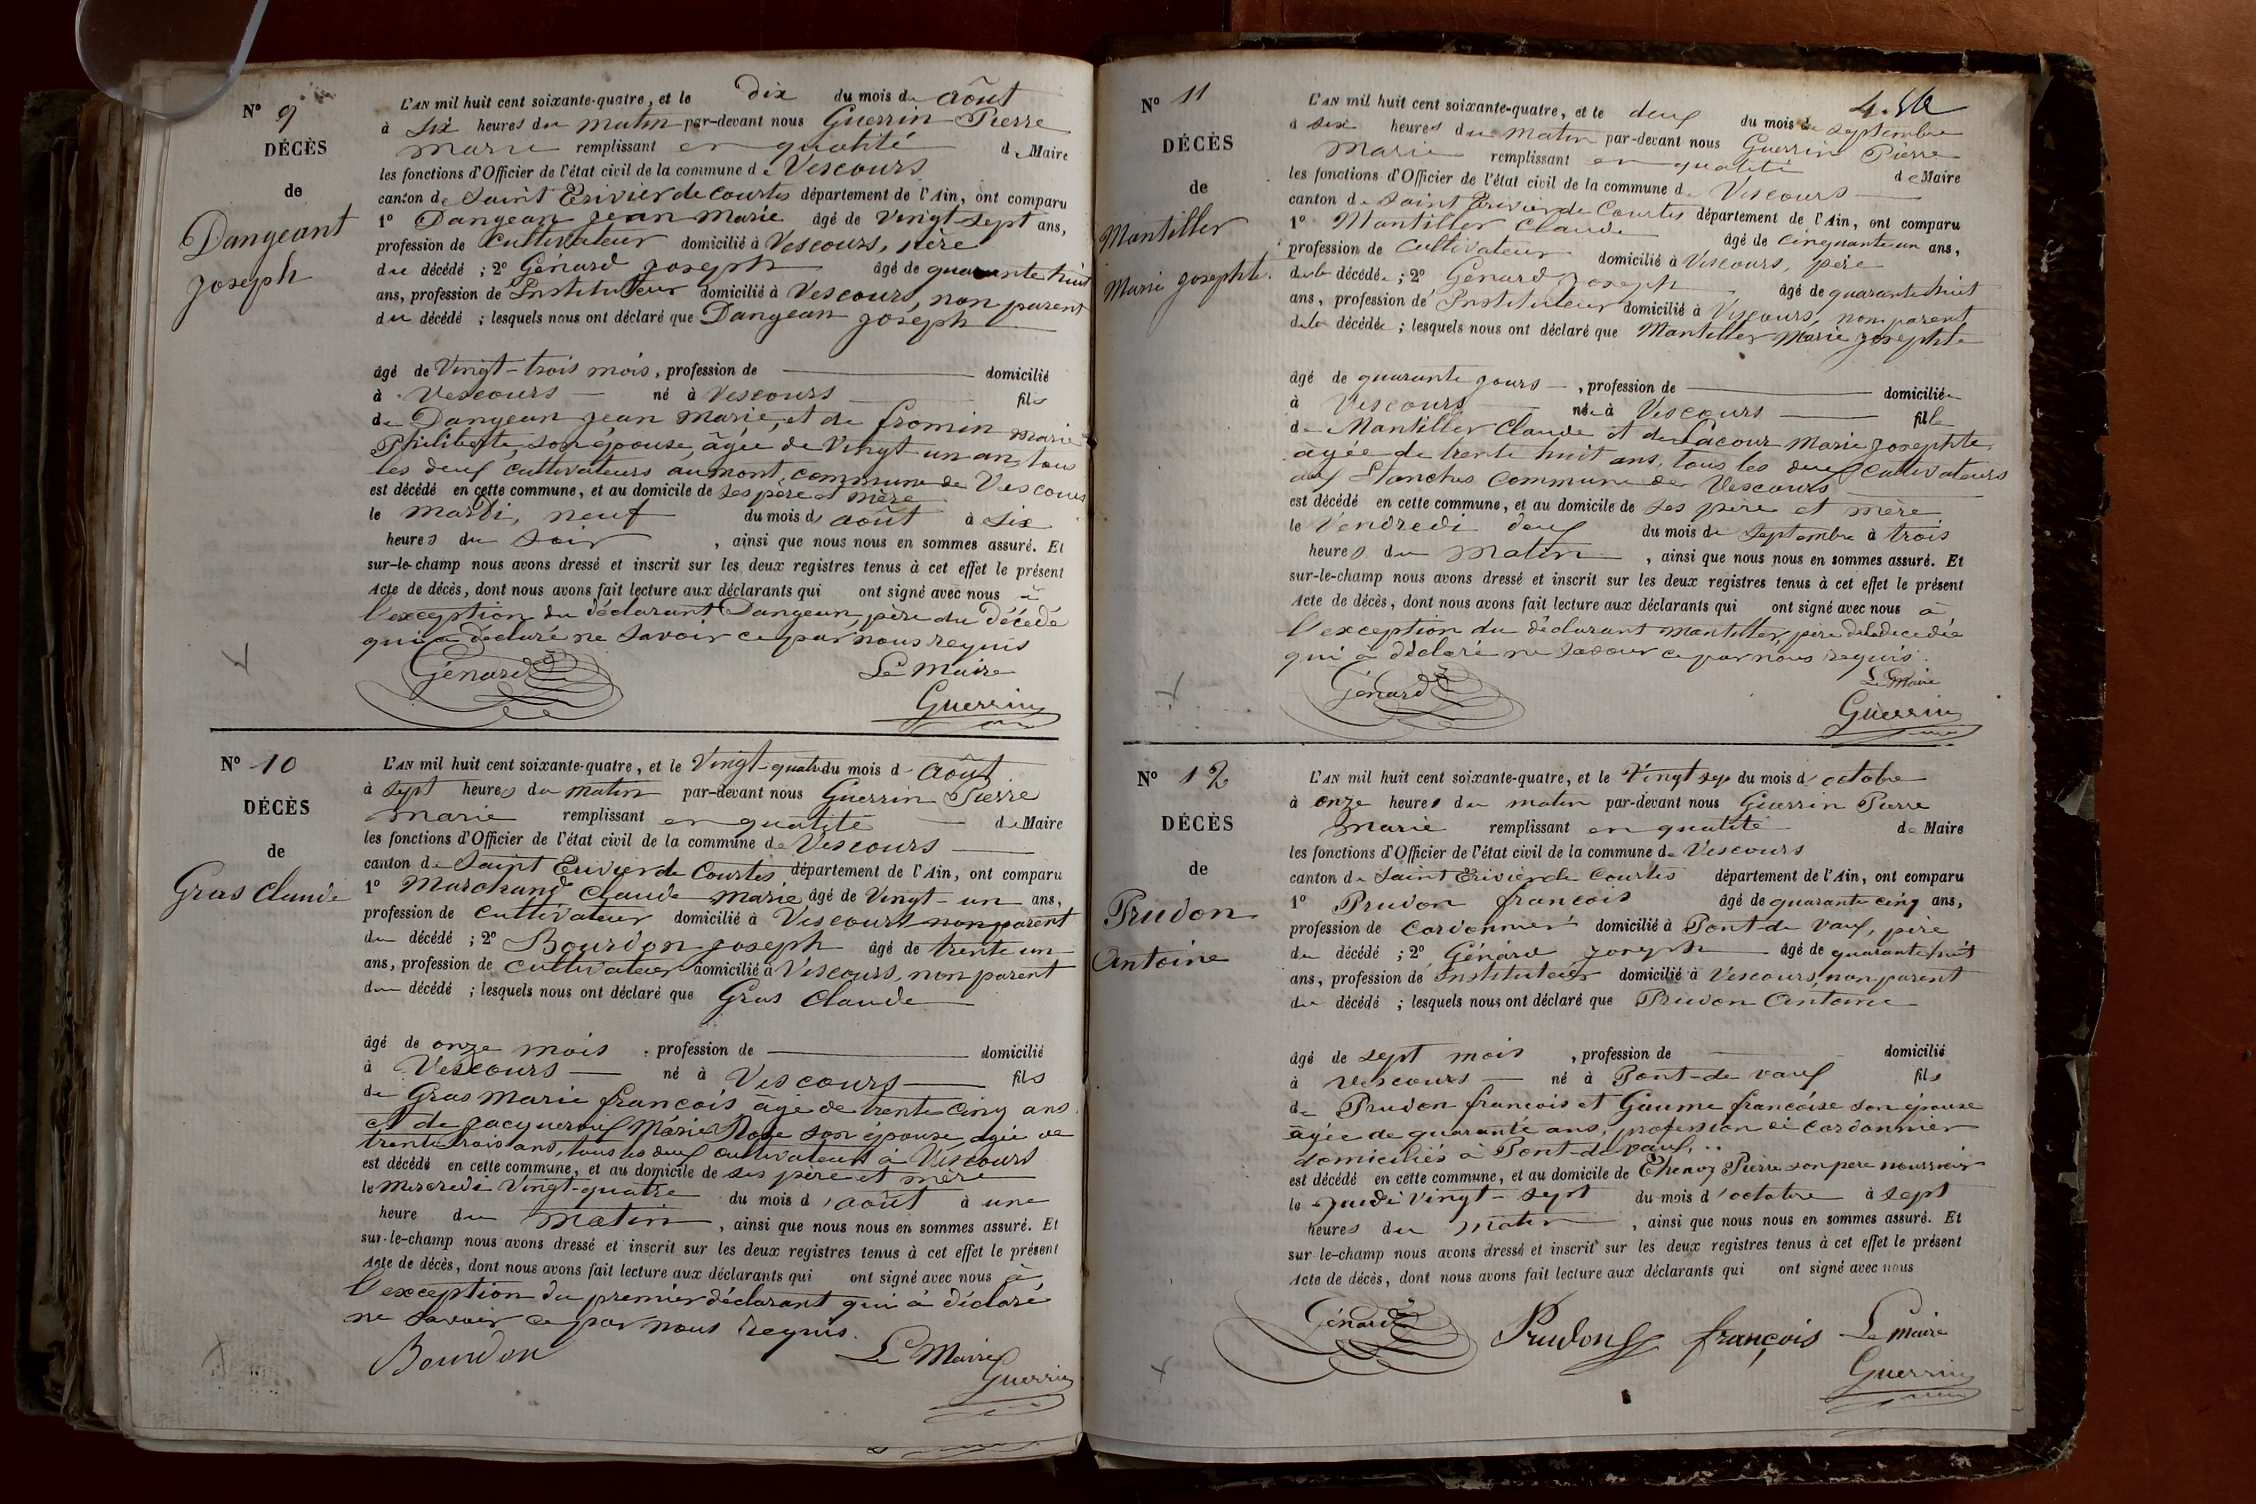 N° 9
DÉCÈS
de
Dangeant
Joseph
L'AN mil huit cent soixante-quatre, et le dix du mois d'août
à six heures du matin par-devant nous Guerrin Pierre
marie remplissant en qualité de Maire
les fonctions d'Officier de l'état civil de la commune de Vescours
canton de Saint Trivier de Courtes département de l'Ain, ont comparu
1° Dangean Jean Marie âgé de vingt sept ans,
profession de cultivateur domicilié à Vescours, père
du décédé ; 2° Génard Joseph âgé de quarante huit
ans, profession de Instituteur domicilié à Vescours, non parent
du décédé ; lesquels nous ont déclaré que Dangean Joseph
âgé de vingt-trois mois, profession de domicilié
à Vescours né à Vescours fils
de Dangean Jean Marie, et de fromin marie
Philiberte, son épouse, âgée de vingt un an, tous
les deux cultivateurs au mont, commune de Vescours
est décédé en cette commune, et au domicile de ses père et mère
le mardi, neuf du mois d'août à six
heures du soir, ainsi que nous nous en sommes assuré. Et
sur-le-champ nous avons dressé et inscrit sur les deux registres tenus à cet effet le présent
Acte de décès, dont nous avons fait lecture aux déclarants qui ont signé avec nous à
l'exception du déclarant Dangean, père du décédé
qui a déclaré ne savoir ce par nous requis
Génard Le Maire
Guerrin
N° 10
DÉCÈS
de
Gras Claude
L'AN mil huit cent soixante-quatre, et le vingt-quatre du mois d'août
à sept heures du matin par-devant nous Guerrin Pierre
marie remplissant en qualité de Maire
les fonctions d'Officier de l'état civil de la commune de Vescours
canton de Saint Trivier de Courtes département de l'Ain, ont comparu
1° Marchand Claude Marie âgé de vingt-un ans,
profession de cultivateur domicilié à Vescours non parent
du décédé ; 2° Bourdon Joseph âgé de trente un
ans, profession de cultivateur domicilié à Vescours, non parent
du décédé ; lesquels nous ont déclaré que Gras Claude
âgé de onze mois, profession de domicilié
à Vescours né à Vescours fils
de Gras Marie françois âgé de trente cinq ans
et de Jacqueroux Marie Rose son épouse agée de
trente trois ans, tous les deux cultivateurs à Vescours
est décédé en cette commune, et au domicile de ses père et mère
le mercredi vingt-quatre du mois d'août à une
heure du matin, ainsi que nous nous en sommes assuré. Et
sur-le-champ nous avons dressé et inscrit sur les deux registres tenus à cet effet le présent
Acte de décès, dont nous avons fait lecture aux déclarants qui ont signé avec nous à
l'exception du premier déclarant qui à déclaré
ne savoir ce par nous requis.
Bourdon Le Maire
Guerrin
N° 11
DÉCÈS
de
Mantiller
Marie Josephte.
L'AN mil huit cent soixante-quatre, et le deux du mois de septembre
à six heures du matin par-devant nous Guerrin Pierre
Marie remplissant en qualité de Maire
les fonctions d'Officier de l'état civil de la commune de Vescours
canton de Saint Trivier de Courtes département de l'Ain, ont comparu
1° Mantiller Claude âgé de cinquante un ans,
profession de cultivateur domicilié à Vescours, père
de la décédée ; 2° Génard Joseph âgé de quarante huit
ans, profession de Instituteur domicilié à Vescours, non parent
de la décédée ; lesquels nous ont déclaré que Mantiller Marie Josephte
âgé de quarante jours, profession de domiciliée
à Vescours née à Vescours fille
de Mantiller Claude et de Lacour Marie Josephte
agée de trente huit ans, tous les deux cultivateurs
aux Etanches commune de Vescours
est décédé en cette commune, et au domicile de ses père et mère
le vendredi deux du mois de septembre à trois
heures du matin, ainsi que nous nous en sommes assuré. Et
sur-le-champ nous avons dressé et inscrit sur les deux registres tenus à cet effet le présent
Acte de décès, dont nous avons fait lecture aux déclarants qui ont signé avec nous à
l'exception du déclarant Mantiller, père de la décédée
qui à déclaré ne savoir ce par nous requis.
Génard Le Maire
Guerrin
N° 12
DÉCÈS
de
Prudon
Antoine
L'AN mil huit cent soixante-quatre, et le vingt sep du mois d'octobre
à onze heures du matin par-devant nous Guerrin Pierre
Marie remplissant en qualité de Maire
les fonctions d'Officier de l'état civil de la commune de Vescours
canton de Saint Trivier de Courtes département de l'Ain, ont comparu
1° Prudon françois âgé de quarante cinq ans,
profession de cordonnier domicilié à Pont-de vaux, père
du décédé ; 2° Génard Joseph âgé de quarante huit
ans, profession de Instituteur domicilié à Vescours, non parent
du décédé ; lesquels nous ont déclaré que Prudon Antoine
âgé de sept mois, profession de domicilié
à Vescours né à Pont-de vaux fils
de Prudon françois et Gaume françoise son épouse
âgée de quarante ans, profession de cordonnier
domiciliés à Pont-de-vaux,
est décédé en cette commune, et au domicile de Thenoz Pierre son père nourricier
le jeudi vingt-sept du mois d'octobre à sept
heures du matin, ainsi que nous nous en sommes assuré. Et
sur-le-champ nous avons dressé et inscrit sur les deux registres tenus à cet effet le présent
Acte de décès, dont nous avons fait lecture aux déclarants qui ont signé avec nous
Génard Prudon françois Le Maire
Guerrin